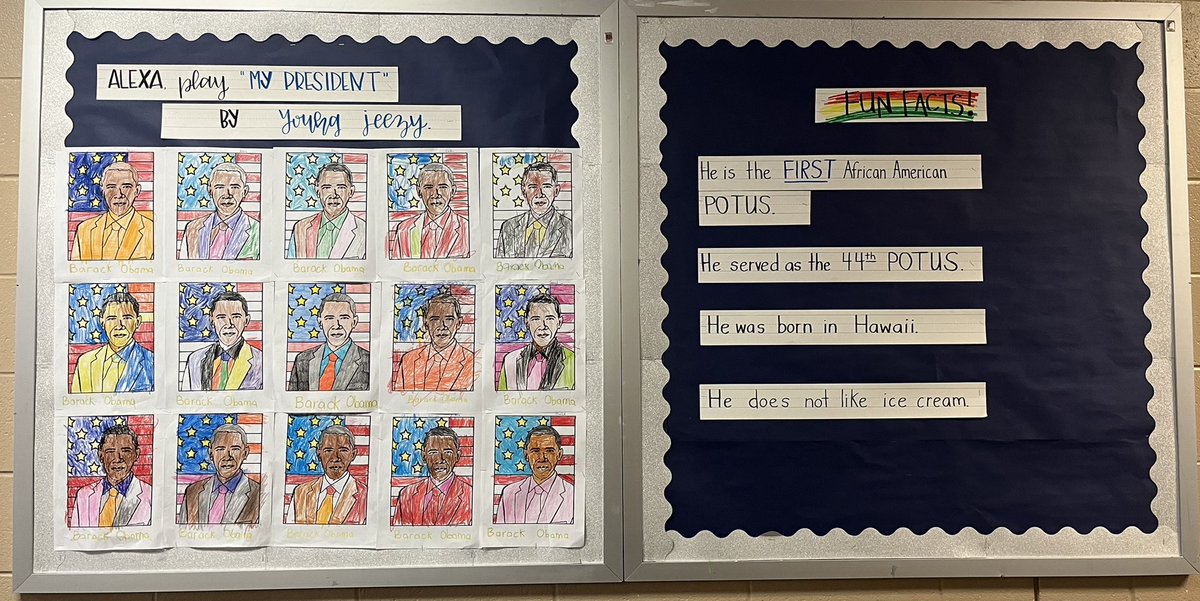 ALEXA, play "MY PRESIDENT"
BY young jeezy.
Barack Obama Barack Obama Barack Obama Barack Obama Barack Obama
Barack Obama Barack Obama Barack Obama Barack Obama Barack Obama
Barack Obama Barack Obama Barack Obama Barack Obama Barack Obama
FUN FACTS!
He is the FIRST African American
POTUS.
He served as the 44th POTUS.
He was born in Hawaii.
He does not like ice cream.